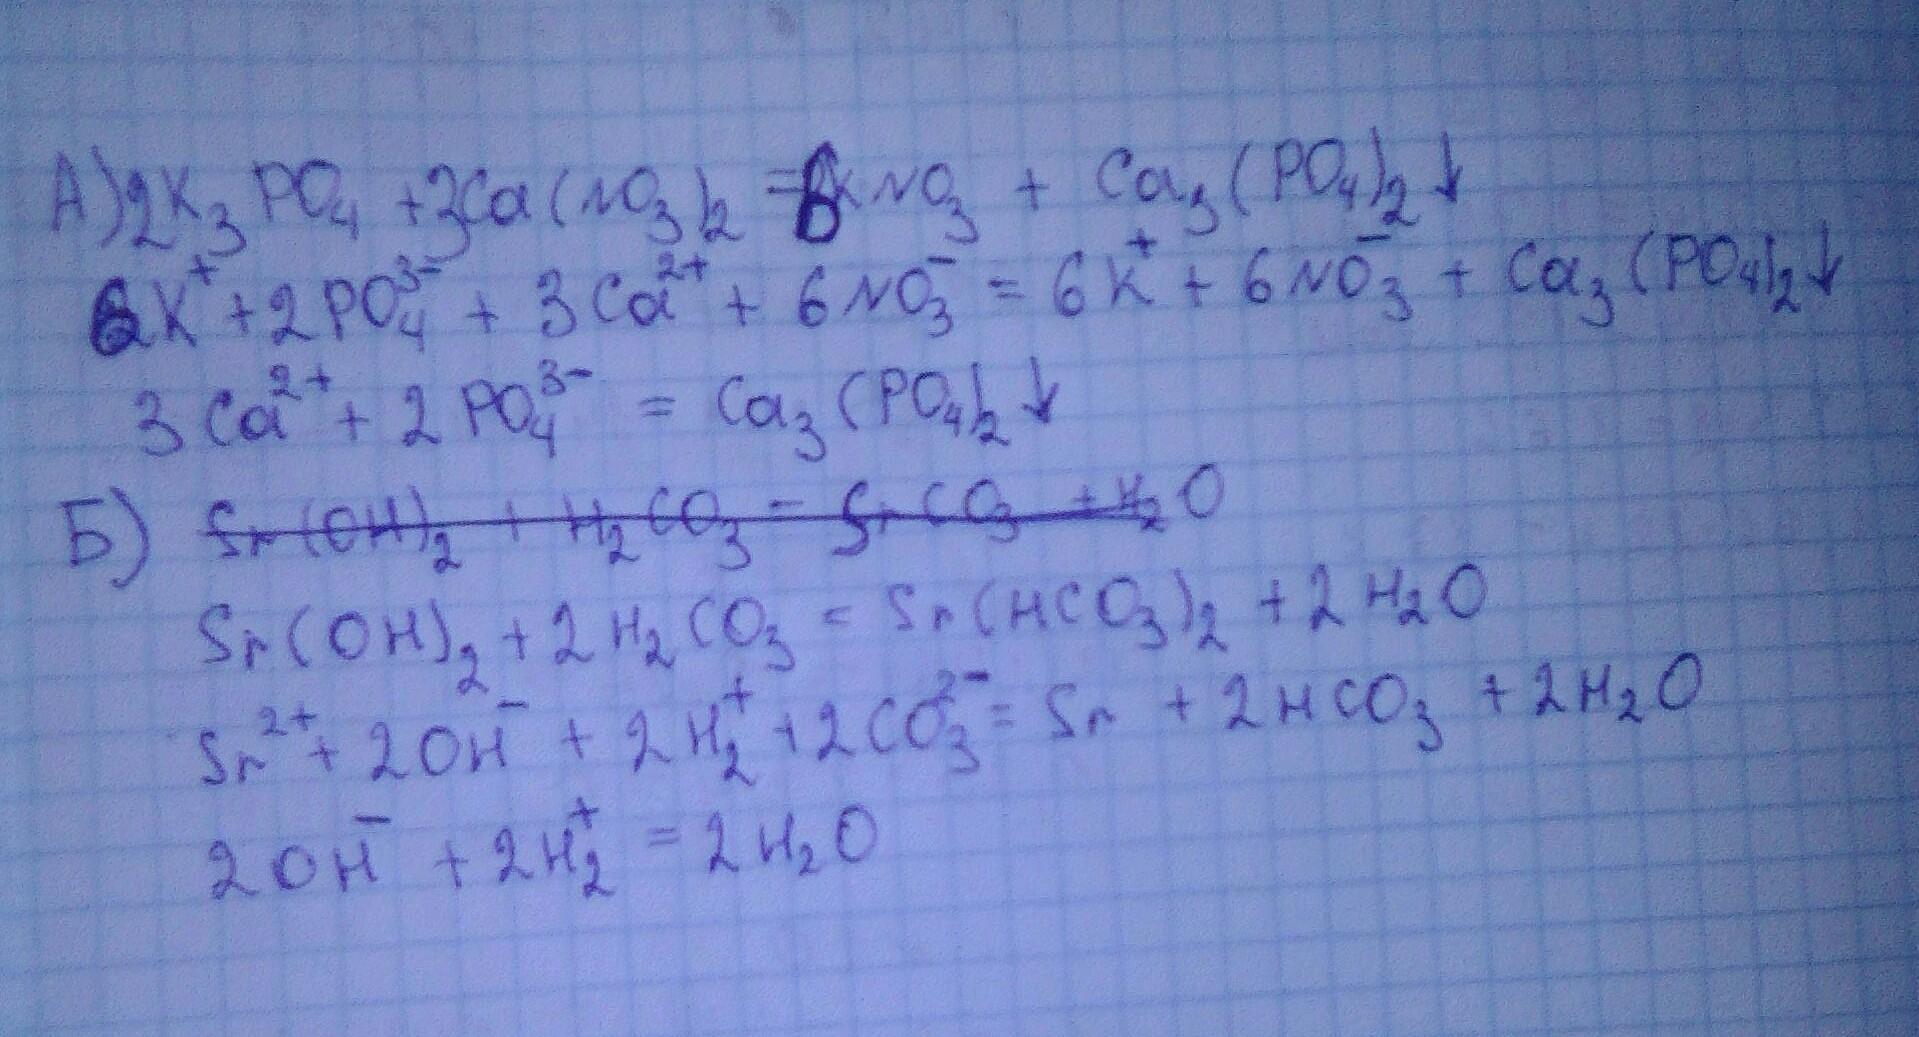 А) 2K₃PO₄ + 3Ca(NO₃)₂ = 6KNO₃ + Ca₃(PO₄)₂↓
6K⁺ + 2PO₄³⁻ + 3Ca²⁺ + 6NO₃⁻ = 6K⁺ + 6NO₃⁻ + Ca₃(PO₄)₂↓
3Ca²⁺ + 2PO₄³⁻ = Ca₃(PO₄)₂↓
Б) Sr(OH)₂ + H₂CO₃ = SrCO₃ + H₂O
Sr(OH)₂ + 2H₂CO₃ = Sr(HCO₃)₂ + 2H₂O
Sr²⁺ + 2OH⁻ + 2H₂⁺ + 2CO₃²⁻ = Sr + 2HCO₃ + 2H₂O
2OH⁻ + 2H₂⁺ = 2H₂O